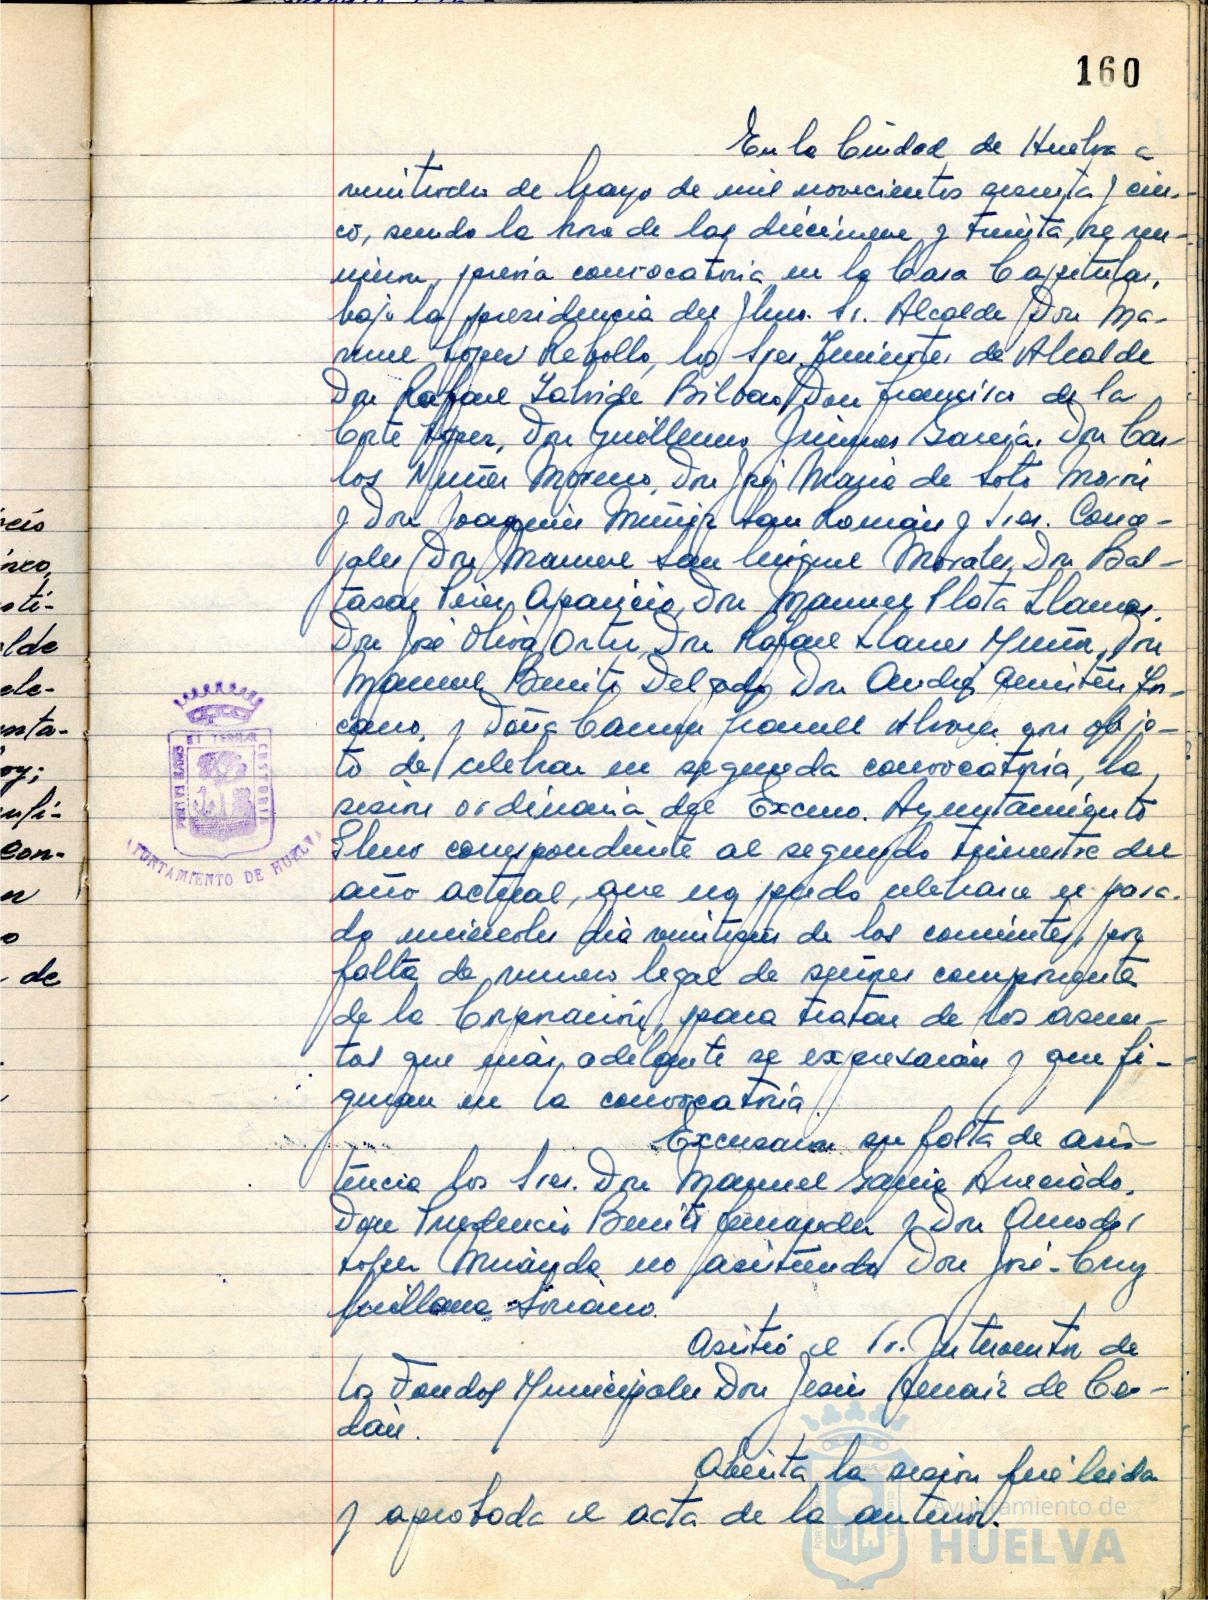 160
En la Ciudad de Huelva a
veintidós de Mayo de mil novecientos sesenta y cin-
co, siendo la hora de las diecinueve y treinta, se reu-
nieron, previa convocatoria, en la Casa Capitular,
bajo la presidencia del Ilmo. Sr. Alcalde Don Ma-
nuel López Rebollo, los Sres. Tenientes de Alcalde
Don Rafael Bilbao, Don Francisco de la
Corte López, Don Guillermo Jiménez García, Don Car-
los Núñez Moreno, Don José María de Soto Morón
y Don Joaquín Muñiz San Román y Sres. Conce-
jales Don Manuel San Miguel Morales, Don Bal-
tasar Aparicio, Don Manuel Plata Llamas,
Don José Oliva Ortiz, Don Rafael Llanes Muñoz, Don
Manuel Benito Delgado, Don Andrés
y Doña Carmen Alvarez con obje-
to de celebrar en segunda convocatoria, la
sesión ordinaria del Excmo. Ayuntamiento
Pleno correspondiente al segundo trimestre del
año actual, que no pudo celebrarse el pasa-
do miércoles día de los corrientes, por
falta de número legal de señores componentes
de la Corporación, para tratar de los asun-
tos que más adelante se expresarán y que fi-
guran en la convocatoria.
Excusaron su falta de asis-
tencia los Sres. Don Manuel García
Don Prudencio Benito Fernández y Don Amador
López Miranda no asistiendo Don José-Cruz
Soriano.
Asistió el Sr. Interventor de
los Fondos Municipales Don Jesús de Ce-
Abierta la sesión fué leida
y aprobada el acta de la anterior.
AYUNTAMIENTO DE HUELVA
Ayuntamiento de
HUELVA
lde
de